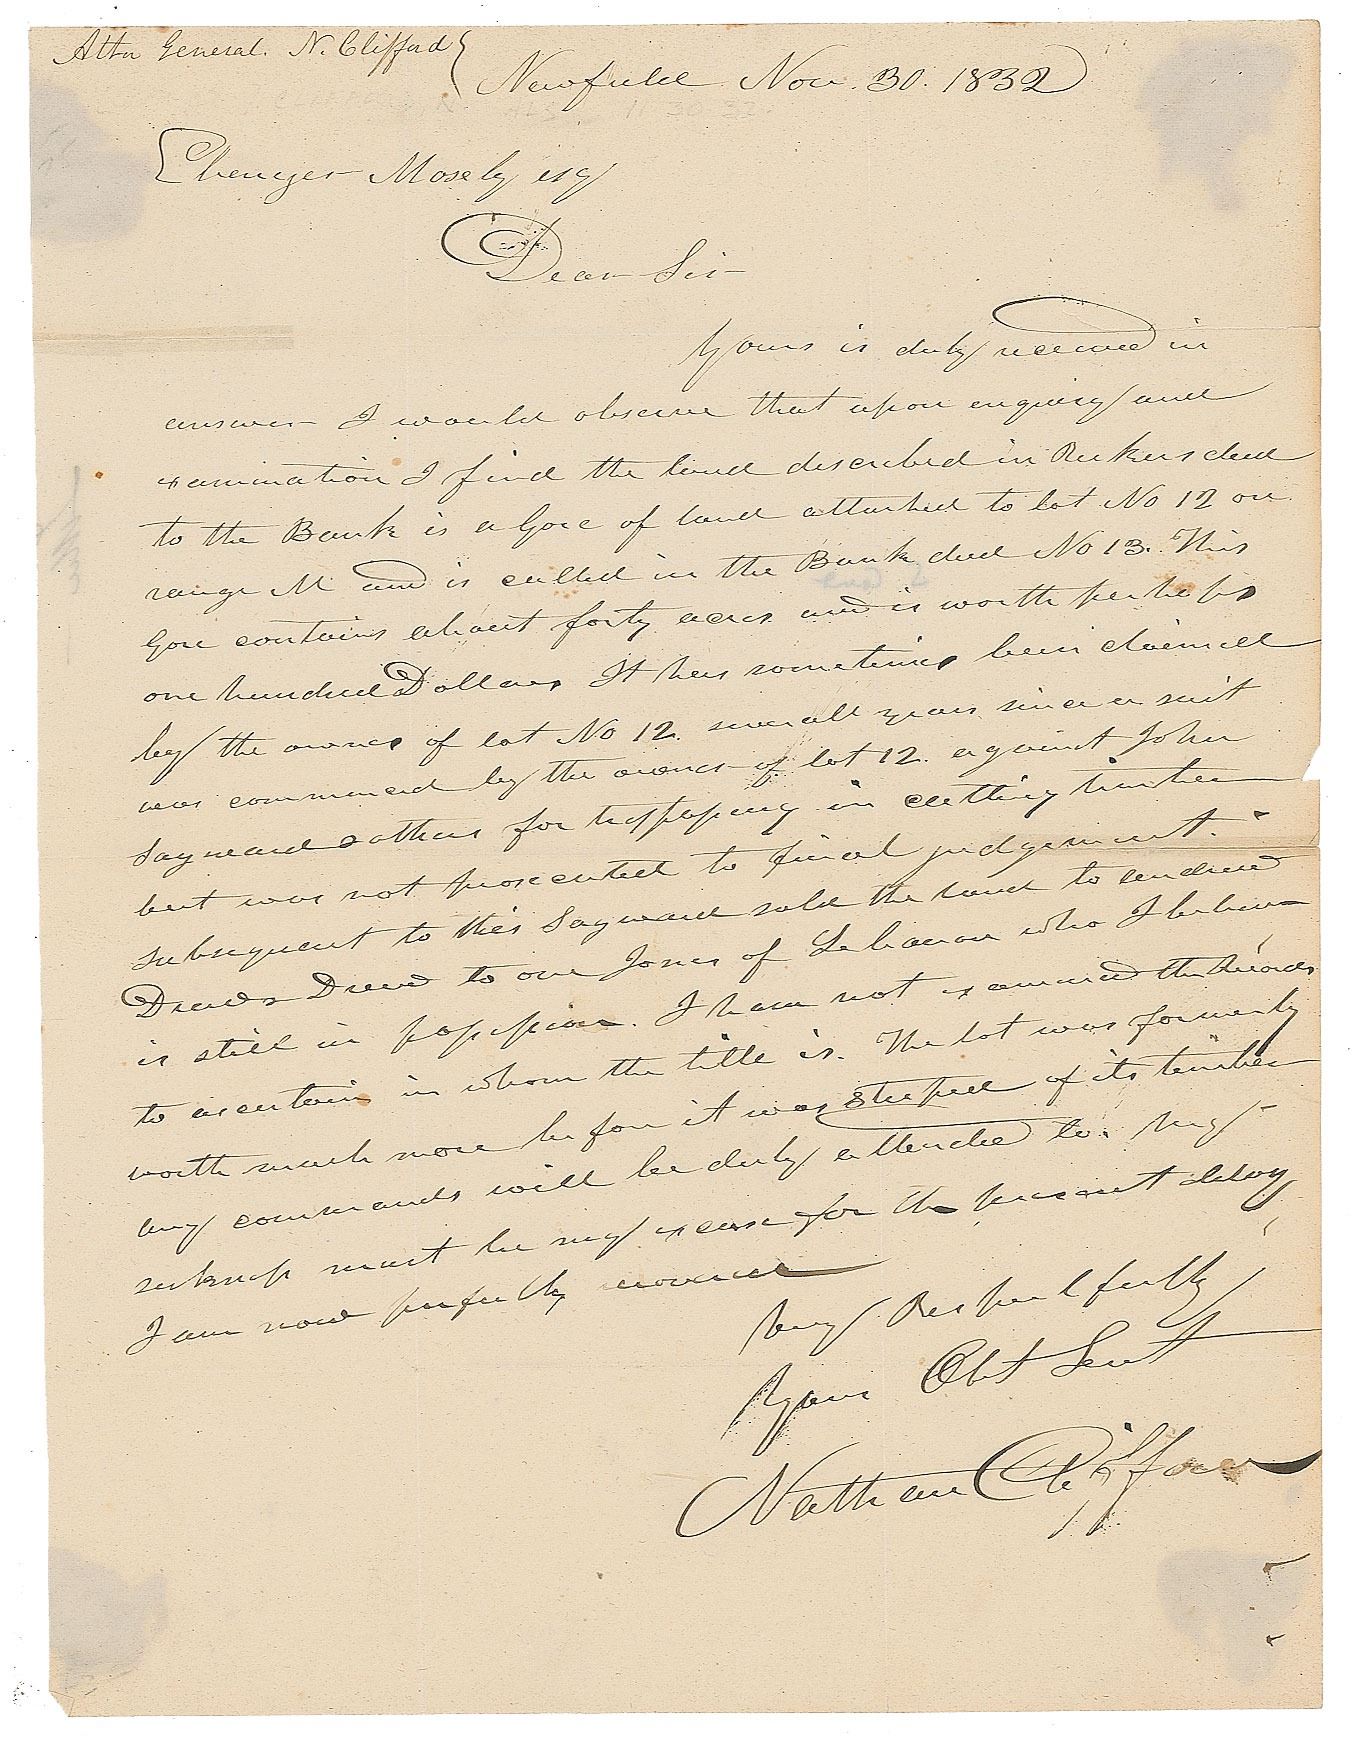 Attn General. N. Clifford
Newfield Nov. 30. 1832
Ebenezer Mosely esq
Dear Sir
Yours is duly received in
answer I would observe that upon enquiry and
examination I find the land described in Rickers deed
to the Bank is a Gore of land attached to lot No 12 on
range M and is called in the Bank deed No 13. This
Gore contains about forty acres and is worth perhaps
one hundred Dollars It has sometimes been claimed
by the owner of lot No 12. severall years since a suit
was commenced by the owner of lot 12. against John
Sayward & others for trespassing in cutting timber
but was not prosecuted to final judgement.
subsequent to this Sayward sold the land to Andrew
Drew & Drew to one Jones of Lebanon who I believe
is still in possession. I have not examined the Records
to ascertain in whom the title is. The lot was formerly
worth much more before it was striped of its timber
any commands will be duly attended to. My
sickness must be my excuse for the present delay
I am now perfectly
Very Respectfully
Your Obt Sevt
Nathan Clifford